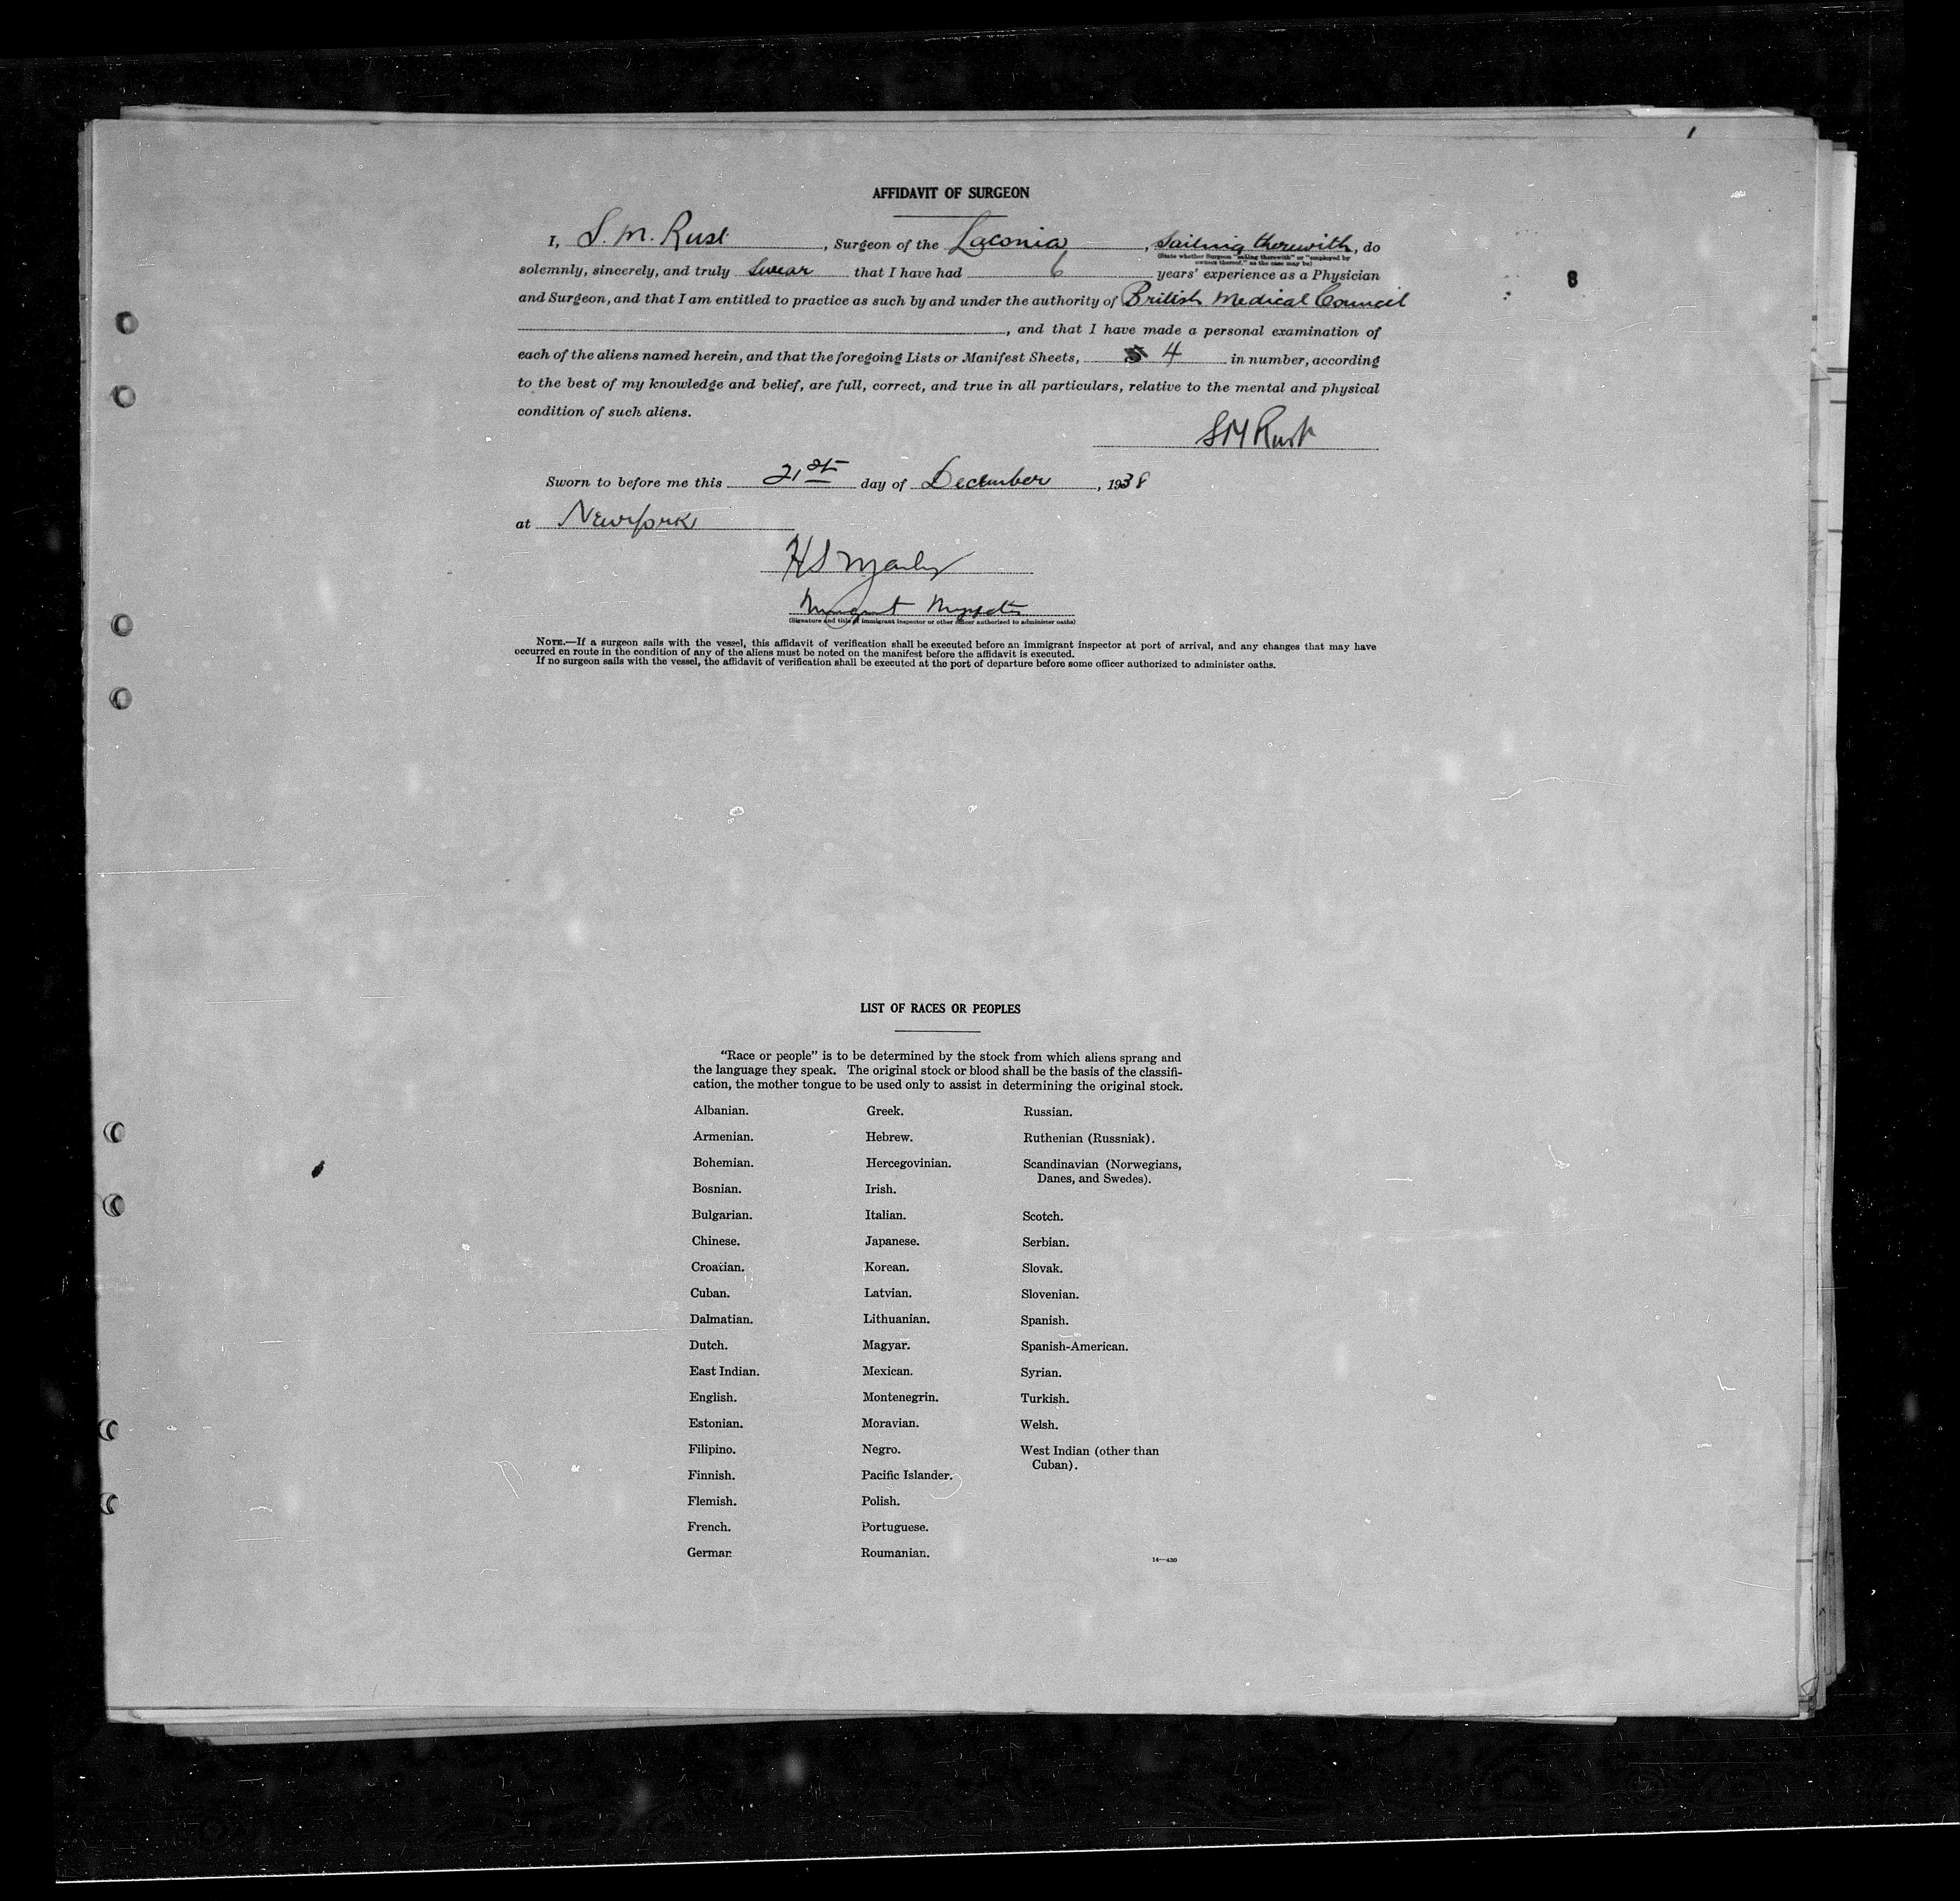 AFFIDAVIT OF SURGEON
I, S. M. Rust, Surgeon of the Laconia, Sailing therewith, do
(State whether Surgeon "sailing therewith" or "employed by
owners thereof," as the case may be)
solemnly, sincerely, and truly swear that I have had 6 years' experience as a Physician
and Surgeon, and that I am entitled to practice as such by and under the authority of British Medical Council
, and that I have made a personal examination of
8
each of the aliens named herein, and that the foregoing Lists or Manifest Sheets, 4 in number, according
to the best of my knowledge and belief, are full, correct, and true in all particulars, relative to the mental and physical
condition of such aliens.
S M Rust
Sworn to before me this 21st day of December, 1938
at New York
(Signature and title of immigrant inspector or other officer authorized to administer oaths)
NOTE.—If a surgeon sails with the vessel, this affidavit of verification shall be executed before an immigrant inspector at port of arrival, and any changes that may have
occurred en route in the condition of any of the aliens must be noted on the manifest before the affidavit is executed.
If no surgeon sails with the vessel, the affidavit of verification shall be executed at the port of departure before some officer authorized to administer oaths.
LIST OF RACES OR PEOPLES
"Race or people" is to be determined by the stock from which aliens sprang and
the language they speak. The original stock or blood shall be the basis of the classifi-
cation, the mother tongue to be used only to assist in determining the original stock.
Albanian.
Armenian.
Bohemian.
Bosnian.
Bulgarian.
Chinese.
Croatian.
Cuban.
Dalmatian.
Dutch.
East Indian.
English.
Estonian.
Filipino.
Finnish.
Flemish.
French.
German
Greek.
Hebrew.
Hercegovinian.
Irish.
Italian.
Japanese.
Korean.
Latvian.
Lithuanian.
Magyar.
Mexican.
Montenegrin.
Moravian.
Negro.
Pacific Islander.
Polish.
Portuguese.
Roumanian.
Russian.
Ruthenian (Russniak).
Scandinavian (Norwegians,
Danes, and Swedes).
Scotch.
Serbian.
Slovak.
Slovenian.
Spanish.
Spanish-American.
Syrian.
Turkish.
Welsh.
West Indian (other than
Cuban).
14—430